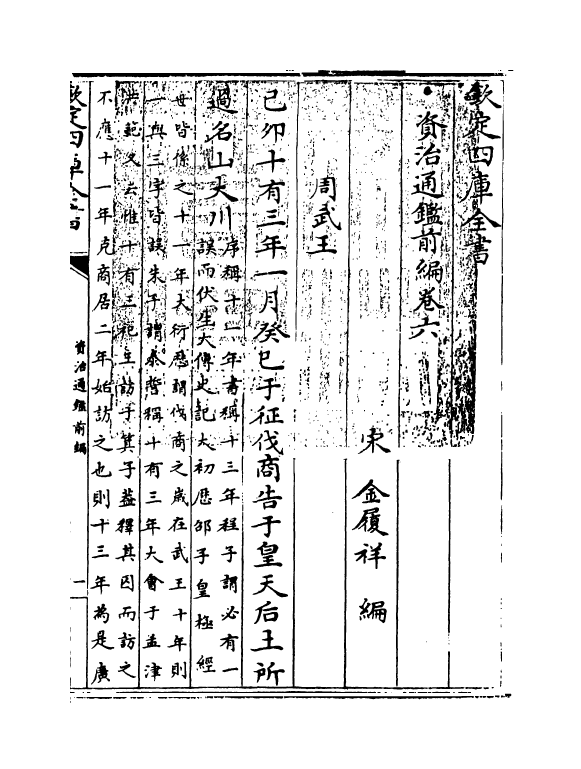 欽定四庫全書
資治通鑑前編卷六
宋 金履祥 編
周武王
己卯十有三年一月癸巳于征伐商告于皇天后土所
過名山大川
序稱十一年書稱十三年程子謂必有一
誤而伏生大傳史記太初厯邵子皇極經
世皆係之十一年大衍厯謂伐商之歲在武王十年則
一與三字皆誤朱子謂泰誓稱十有三年大會于孟津
洪範又云惟十有三祀王訪于箕子蓋釋其囚而訪之
不應十一年克商居二年始訪之也則十三年為是廣
欽定四庫全書
資治通鑑前編
一